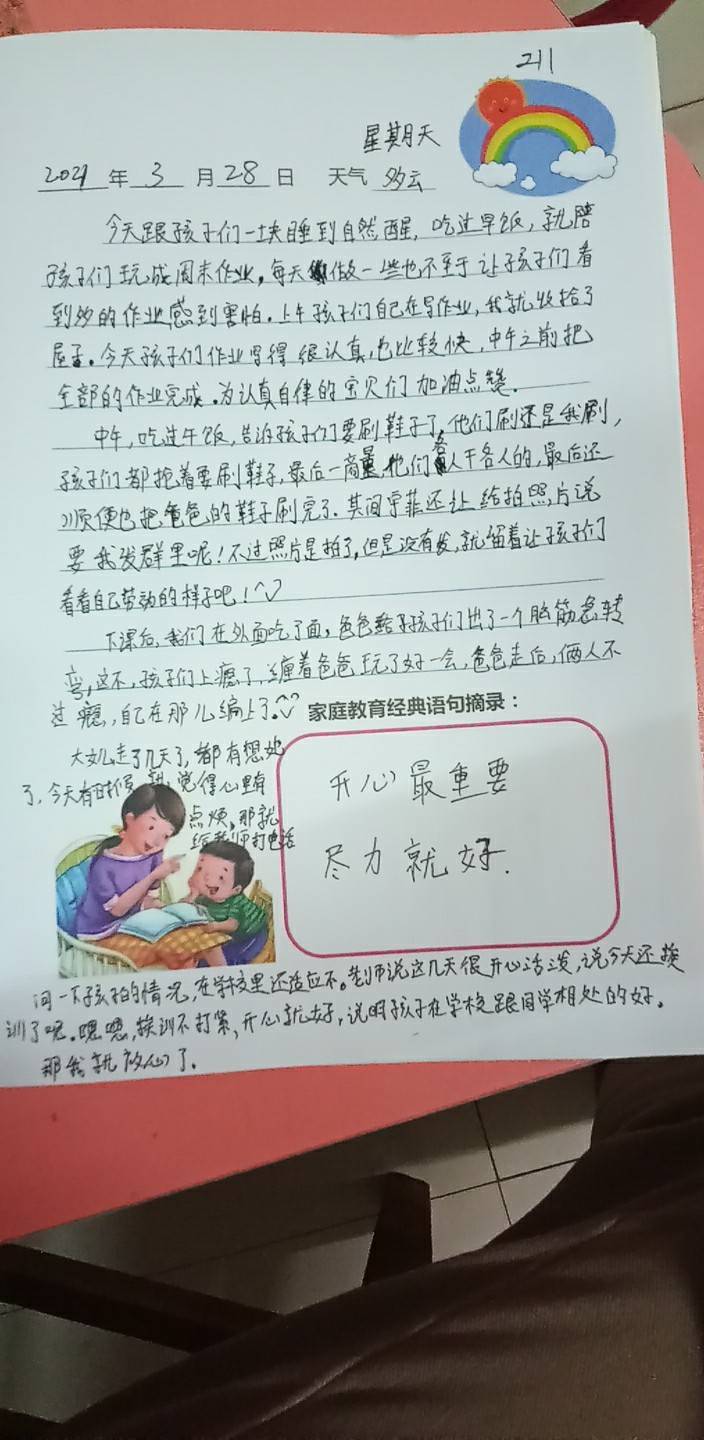 211
星期天
2021年3月28日 天气 多云
今天跟孩子们一块睡到自然醒，吃过早饭，就陪
孩子们玩成周末作业，每天做一些也不至于让孩子们看
到的作业感到害怕。上午孩子们自己在写作业，我就收拾了
屋子。今天孩子们作业写得很认真，也比较快，中午之前把
全部的作业完成。为认真自律的宝贝们加油点赞.
中午，吃过午饭，告诉孩子们要刷鞋子了，他们刷还是我刷，
孩子们都抢着要刷鞋子，最后一商量，他们各人干各人的，最后还
顺便也把爸爸的鞋子刷完了. 其间 还让给拍照片说
要我发群里呢！不过照片是拍了，但是没有发，就留着让孩子们
看看自己劳动的样子吧！
下课后，我们在外面吃了面，爸爸给孩子们出了一个脑筋急转
弯，这不，孩子们上瘾了，缠着爸爸玩了好一会，爸爸走后，俩人不
过瘾，自己在那儿编上了.
家庭教育经典语句摘录：
大女儿走了几天了，都有想她
了，今天有时候 觉得心里有
点烦，那就
给老师打电话
开心最重要
尽力就好.
问一下孩子的情况，在学校里还适应不。老师说这几天很开心活泼，说今天还挨
训了呢。嗯嗯，挨训不打紧，开心就好，说明孩子在学校跟同学相处的好。
那我就放心了.